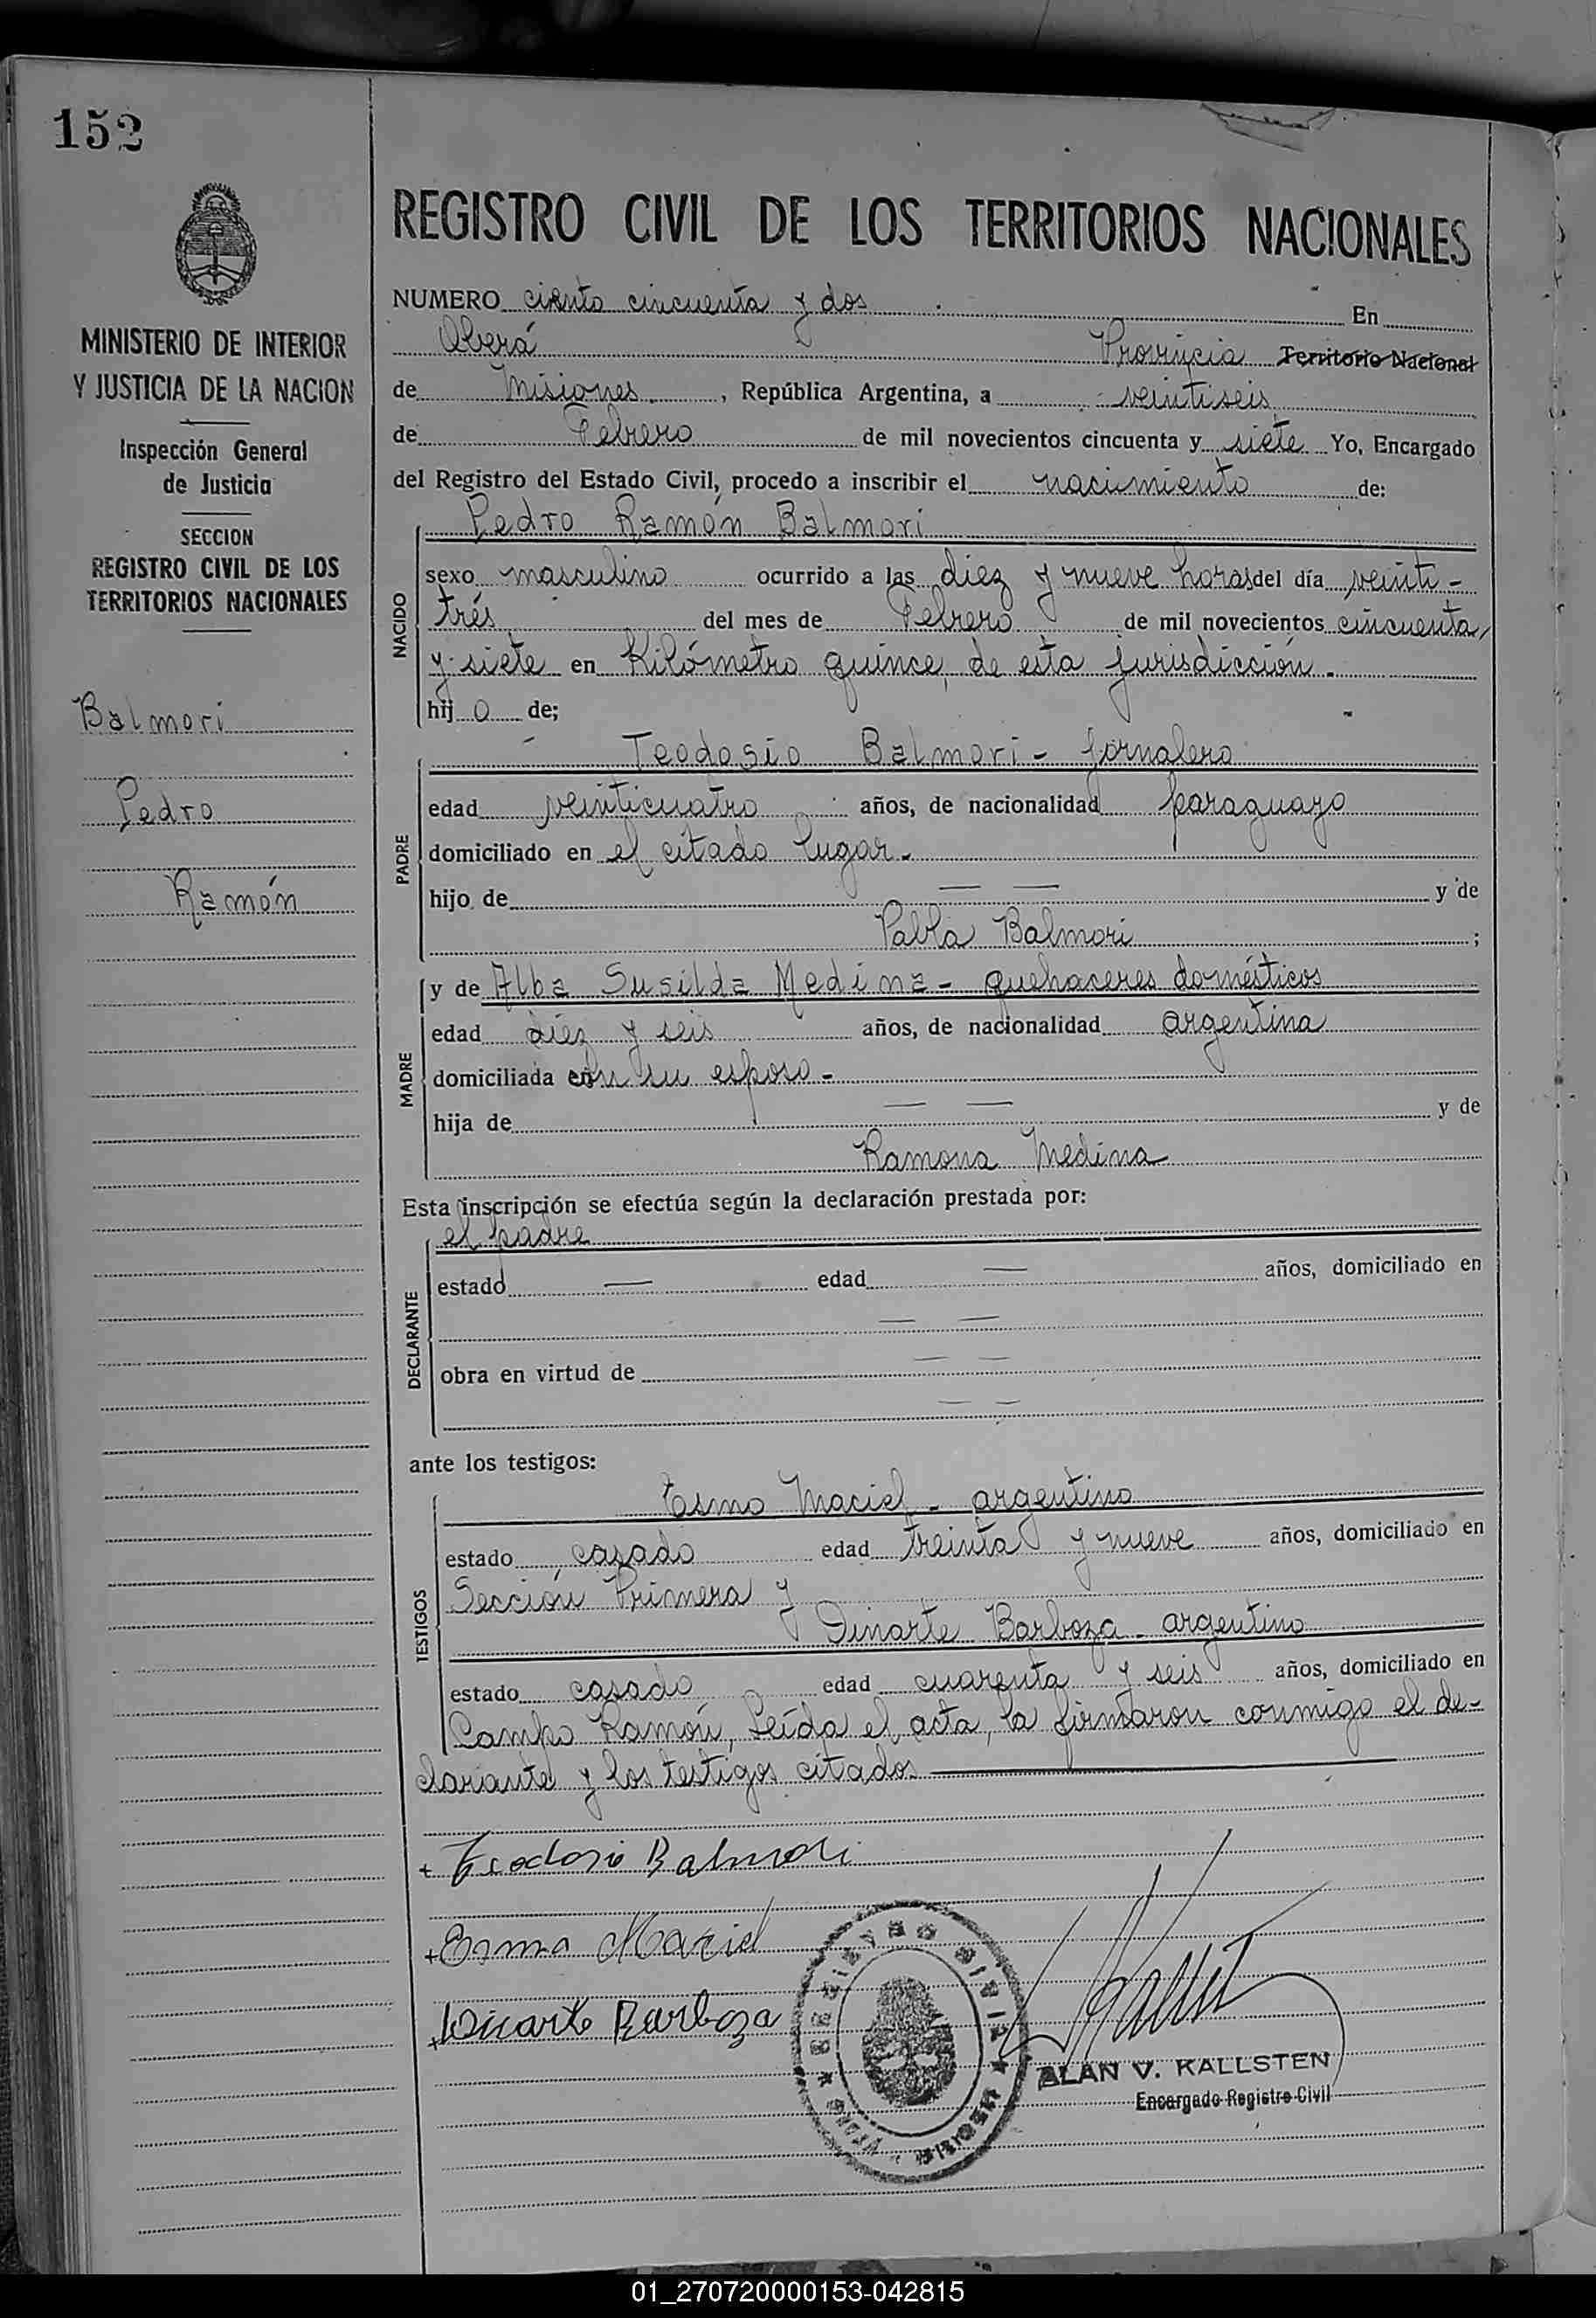 152
MINISTERIO DE INTERIOR
Y JUSTICIA DE LA NACION
Inspección General
de Justicia
SECCION
REGISTRO CIVIL DE LOS
TERRITORIOS NACIONALES
Balmori
Pedro
Ramón
REGISTRO CIVIL DE LOS TERRITORIOS NACIONALES
NUMERO ciento cincuenta y dos En
Oberá Provincia Territorio Nacional
de Misiones, República Argentina, a veintiseis
de Febrero de mil novecientos cincuenta y siete Yo, Encargado
del Registro del Estado Civil, procedo a inscribir el nacimiento de:
NACIDO
Pedro Ramón Balmori
sexo masculino ocurrido a las diez y nueve horas del día veinti-
trés del mes de Febrero de mil novecientos cincuenta
y siete en Kilómetro quince, de esta jurisdicción.
hij o de;
PADRE
Teodosio Balmori - jornalero
edad veinticuatro años, de nacionalidad paraguayo
domiciliado en el citado lugar.
hijo de — — y de
Pabla Balmori ;
MADRE
y de Alba Susilda Medina - quehaceres domésticos
edad diez y seis años, de nacionalidad argentina
domiciliada con su esposo -
hija de — — y de
Ramona Medina
Esta inscripción se efectúa según la declaración prestada por:
DECLARANTE
el padre
estado — edad — años, domiciliado en
— —
obra en virtud de — —
— —
ante los testigos:
TESTIGOS
Maciel - argentino
estado casado edad treinta y nueve años, domiciliado en
Sección Primera y
Dinarte Barboza - argentino
estado casado edad cuarenta y seis años, domiciliado en
Campo Ramón, Leída el acta, la firmaron conmigo el de-
clarante y los testigos citados
+ Teodosio Balmori
+ Maciel
+ Dinarte Barboza
ALAN V. KALLSTEN
Encargado Registro Civil
01_270720000153-042815